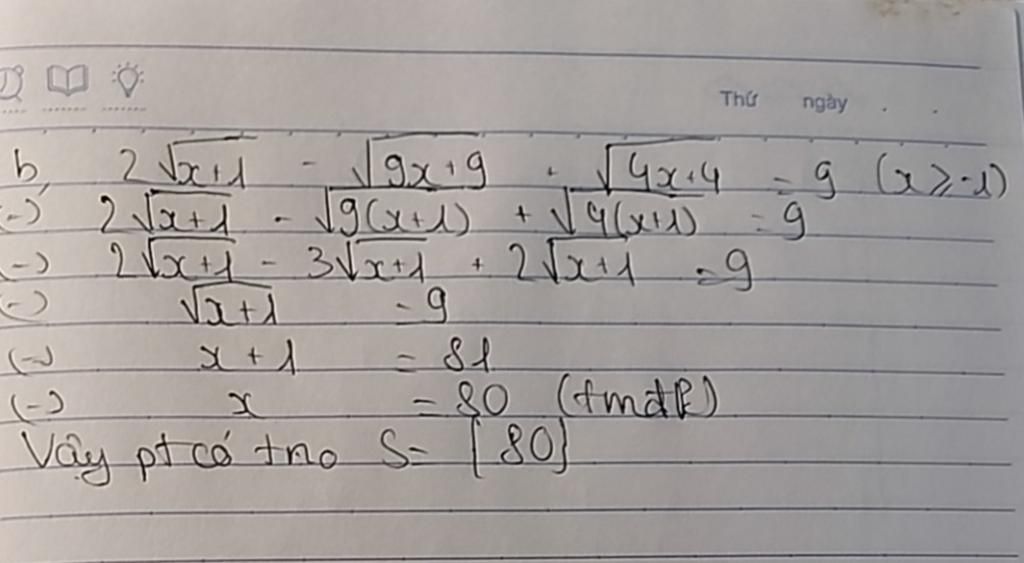 Thứ ngày . .
b, 2√x+1 - √9x+9 . √4x+4 = 9 (x ≥ -1)
(-) 2√x+1 - √9(x+1) + √4(x+1) = 9
(-) 2√x+1 - 3√x+1 + 2√x+1 = 9
(-) √x+1 = 9
(-) x + 1 = 81
(-) x = 80 (tmđk)
Vậy pt có tno S= {80}